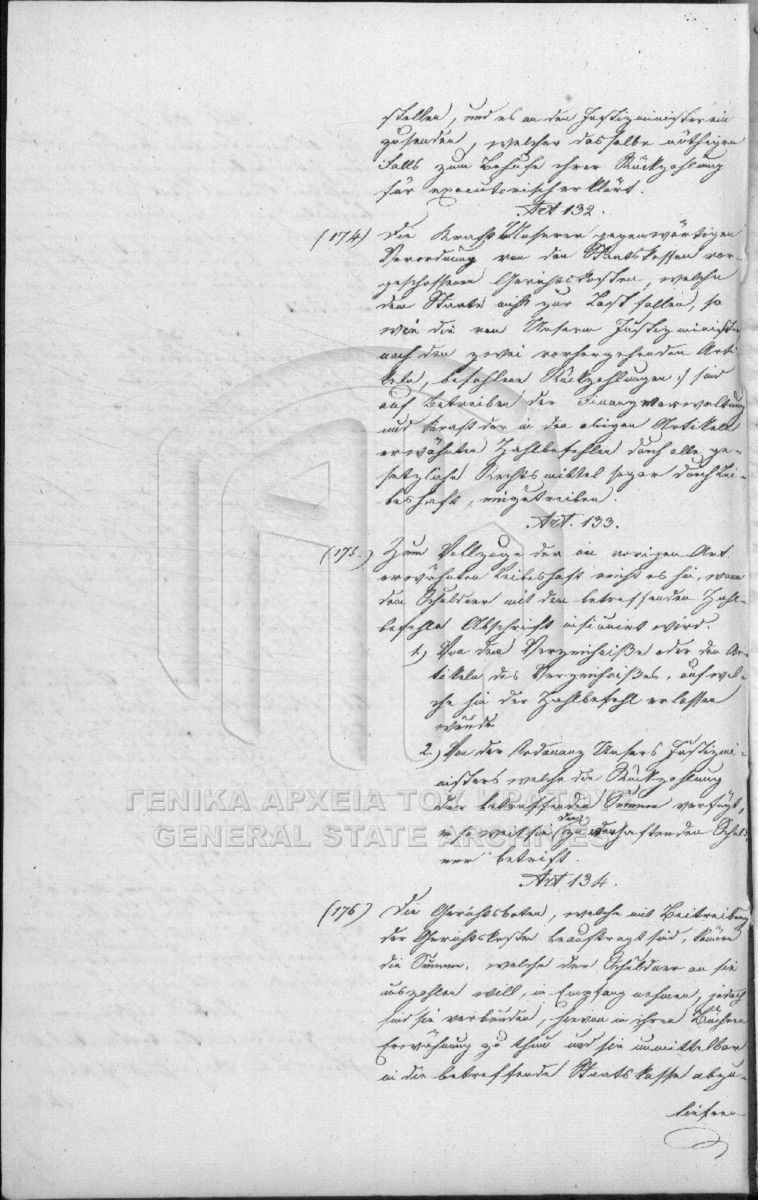 stellen, und es an den Justizminister ein
zusenden, welcher dasselbe nöthigen
Falls zum Behufe ihrer Rückzahlung
für executorisch erklärt.
Art 132.
(174) Die Kraft Unserer gegenwärtigen
Verordnung von den Staatskassen vor-
geschossenen Gerichtskosten, welche
dem Staate nicht zur Last fallen, so
wie die von Unserm Justizminister
nach den zwei vorhergehenden Arti
keln, befohlene Rückzahlungen :/ sind
auf Betreiben der Finanzverwaltung
und Kraft der in den obigen Artikeln
erwähnten Zahlbefehlen durch alle ge-
setzliche Rechtsmittel sogar durch Lei-
beshaft, einzutreiben.
Art. 133.
(175.) Zum Vollzuge der im vorigen Art.
erwähnten Leibeshaft reicht es hin, wenn
dem Schuldner mit dem betreffenden Zahl-
befehle Abschrift insinuirt wird.
1) Von dem Verzeichniße oder den Ar-
tikeln des Verzeichnißes, auf wel-
che hin der Zahlbefehl erlassen
wurde
2.) Von der Ordonanz Unsers Justizmi-
nisters welche die Rückzahlung
der betreffenden Summe verfügt,
in so weit sie den zu verhaftenden Schuld-
ner betrift.
Art 134.
(176) Die Gerichtsboten, welche mit Beitreibung
der Gerichtskosten beauftragt sind, können
die Summe, welche der Schuldner an sie
auszahlen will, in Empfang nehmen, jedoch
sind sie verbunden, hievon in ihren Büchern
Erwähnung zu thun und sie unmittelbar
in die betreffende Staatskasse abzu-
liefern
ΓΕΝΙΚΑ ΑΡΧΕΙΑ ΤΟΥ ΚΡΑΤΟΥΣ
GENERAL STATE ARCHIVES